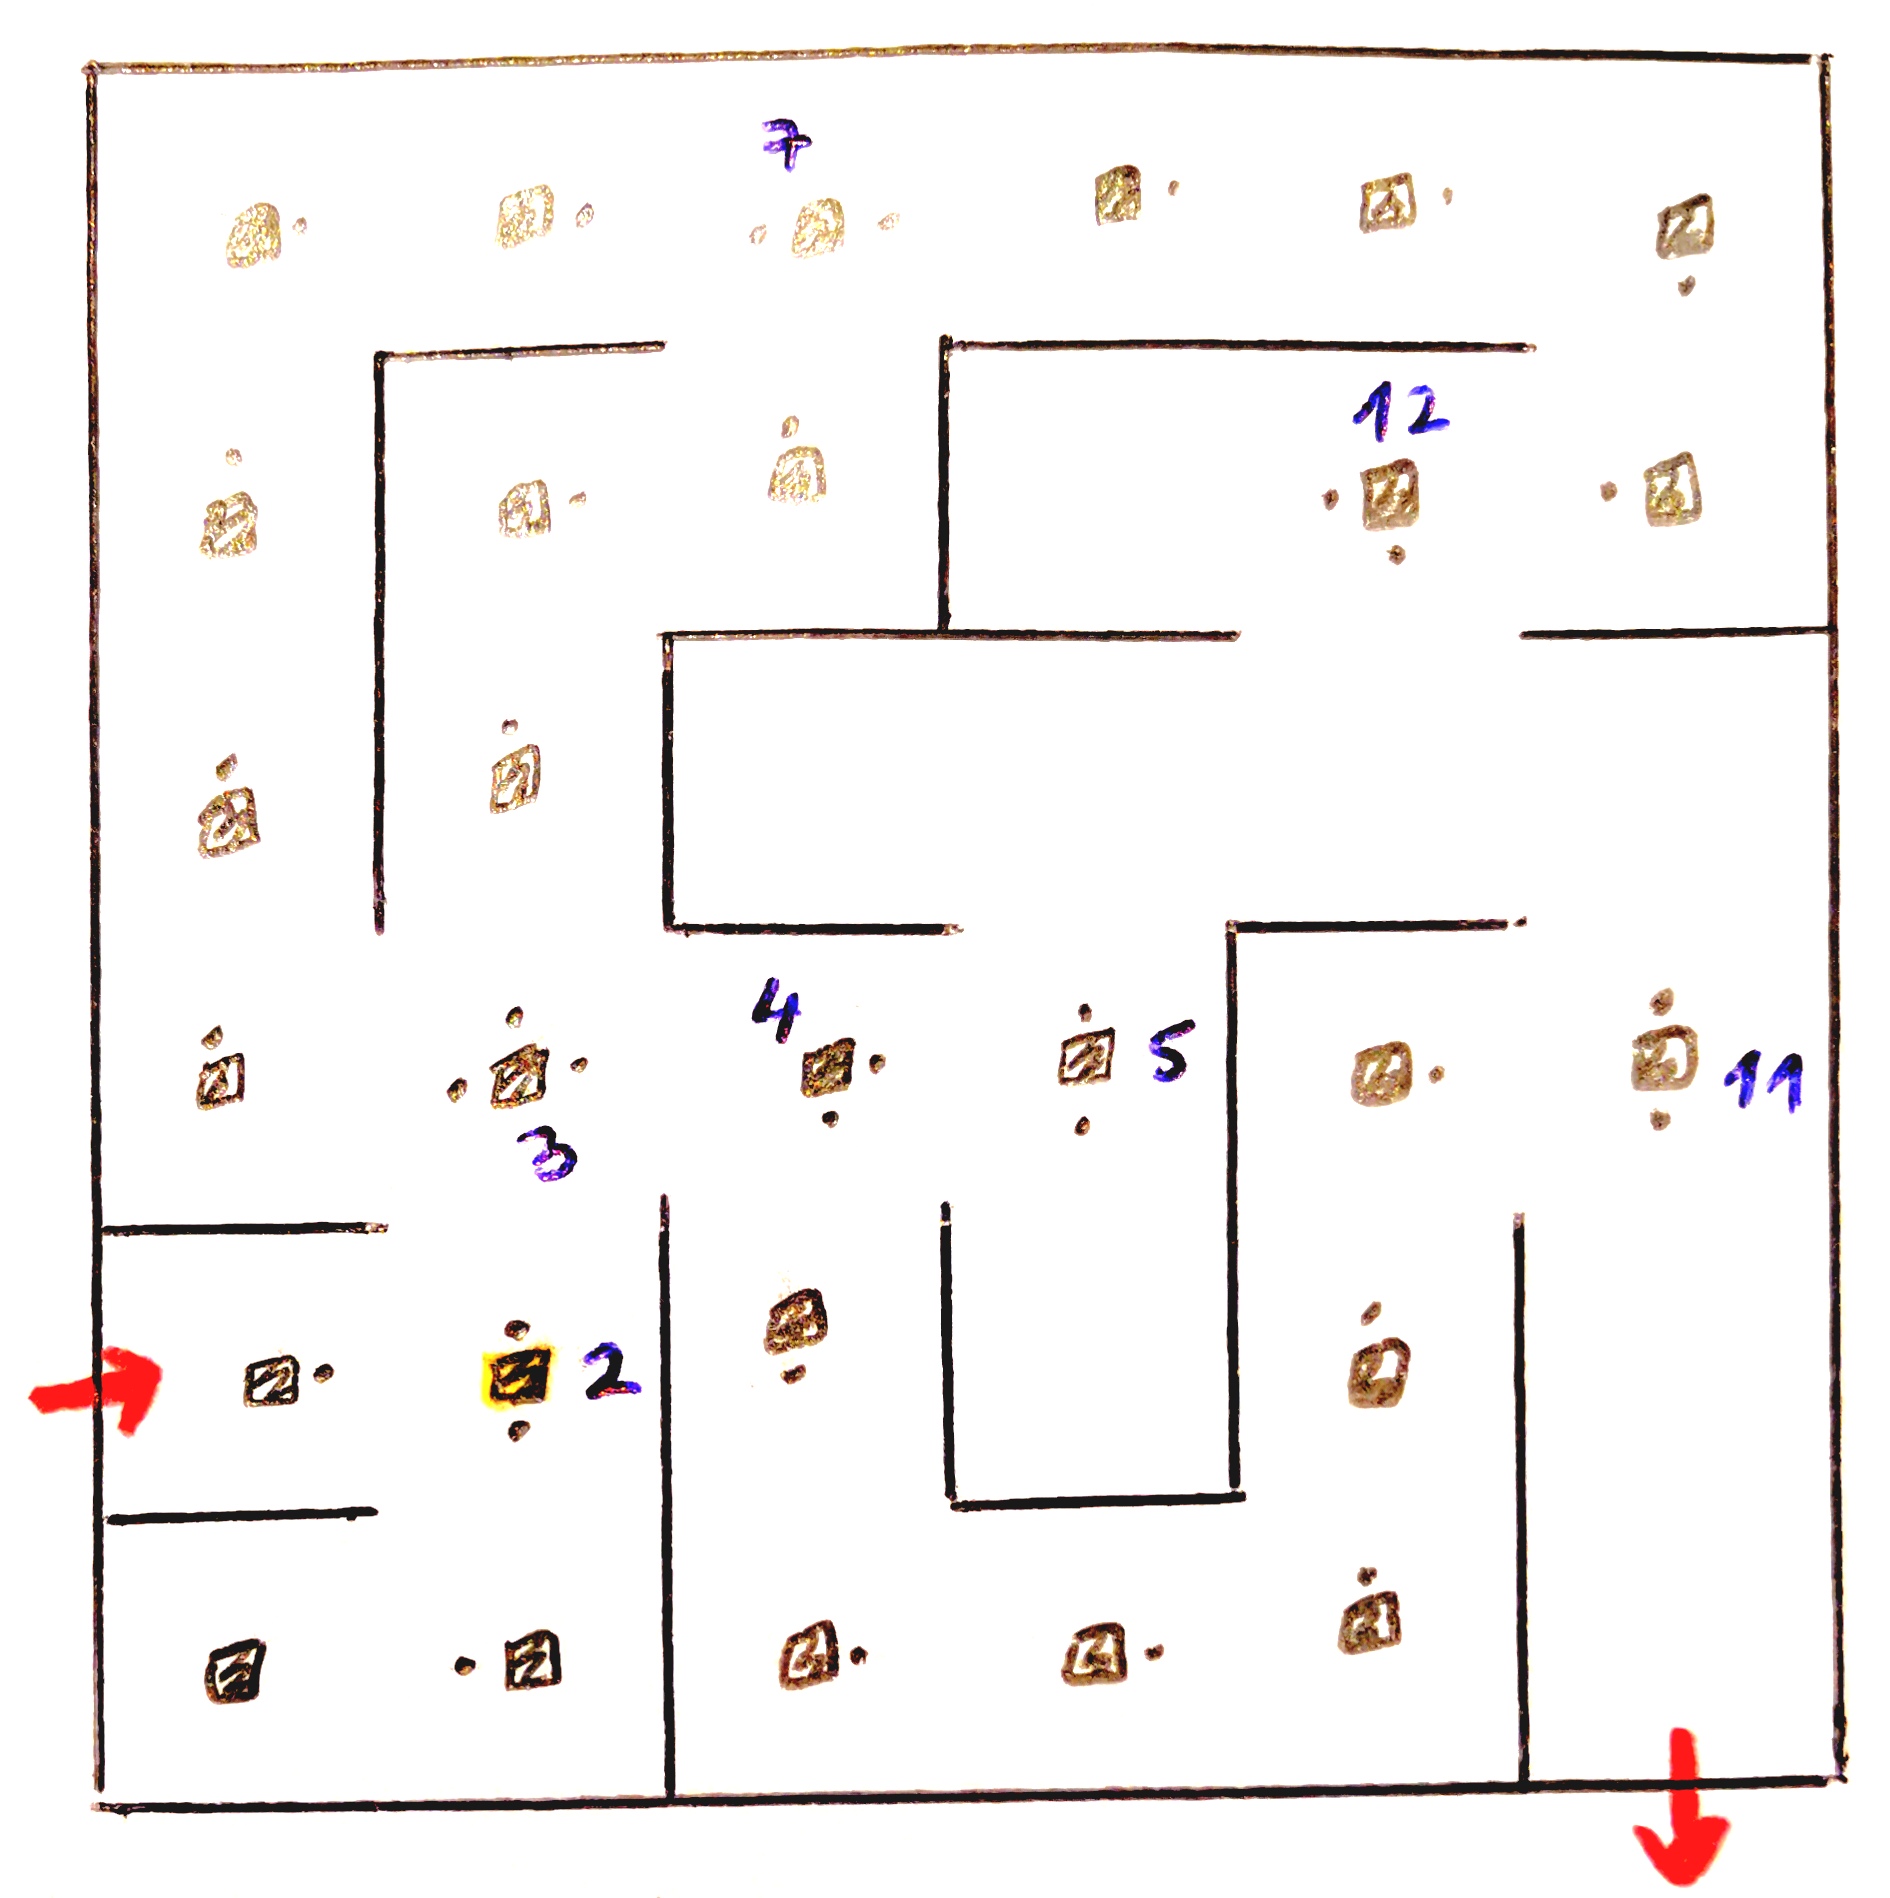 7
12
4
5
11
3
2